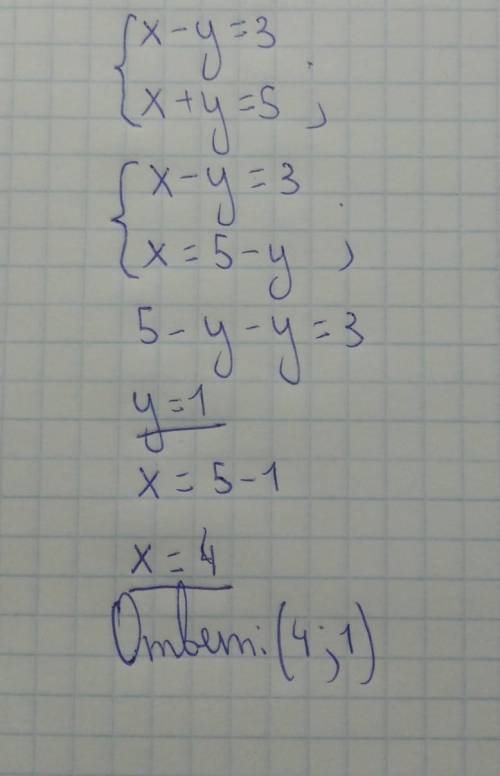 {x - y = 3
{x + y = 5 ;
{x - y = 3
{x = 5 - y ;
5 - y - y = 3
y = 1
x = 5 - 1
x = 4
Ответ: (4; 1)